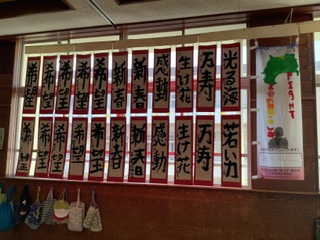 光る海
万寿
生け花
感動
新春
新春
希望
希望
希望
希望
希望
若い力
万寿
生け花
感動
新春
新春
希望
希望
希望
希望
希望
FIGHT